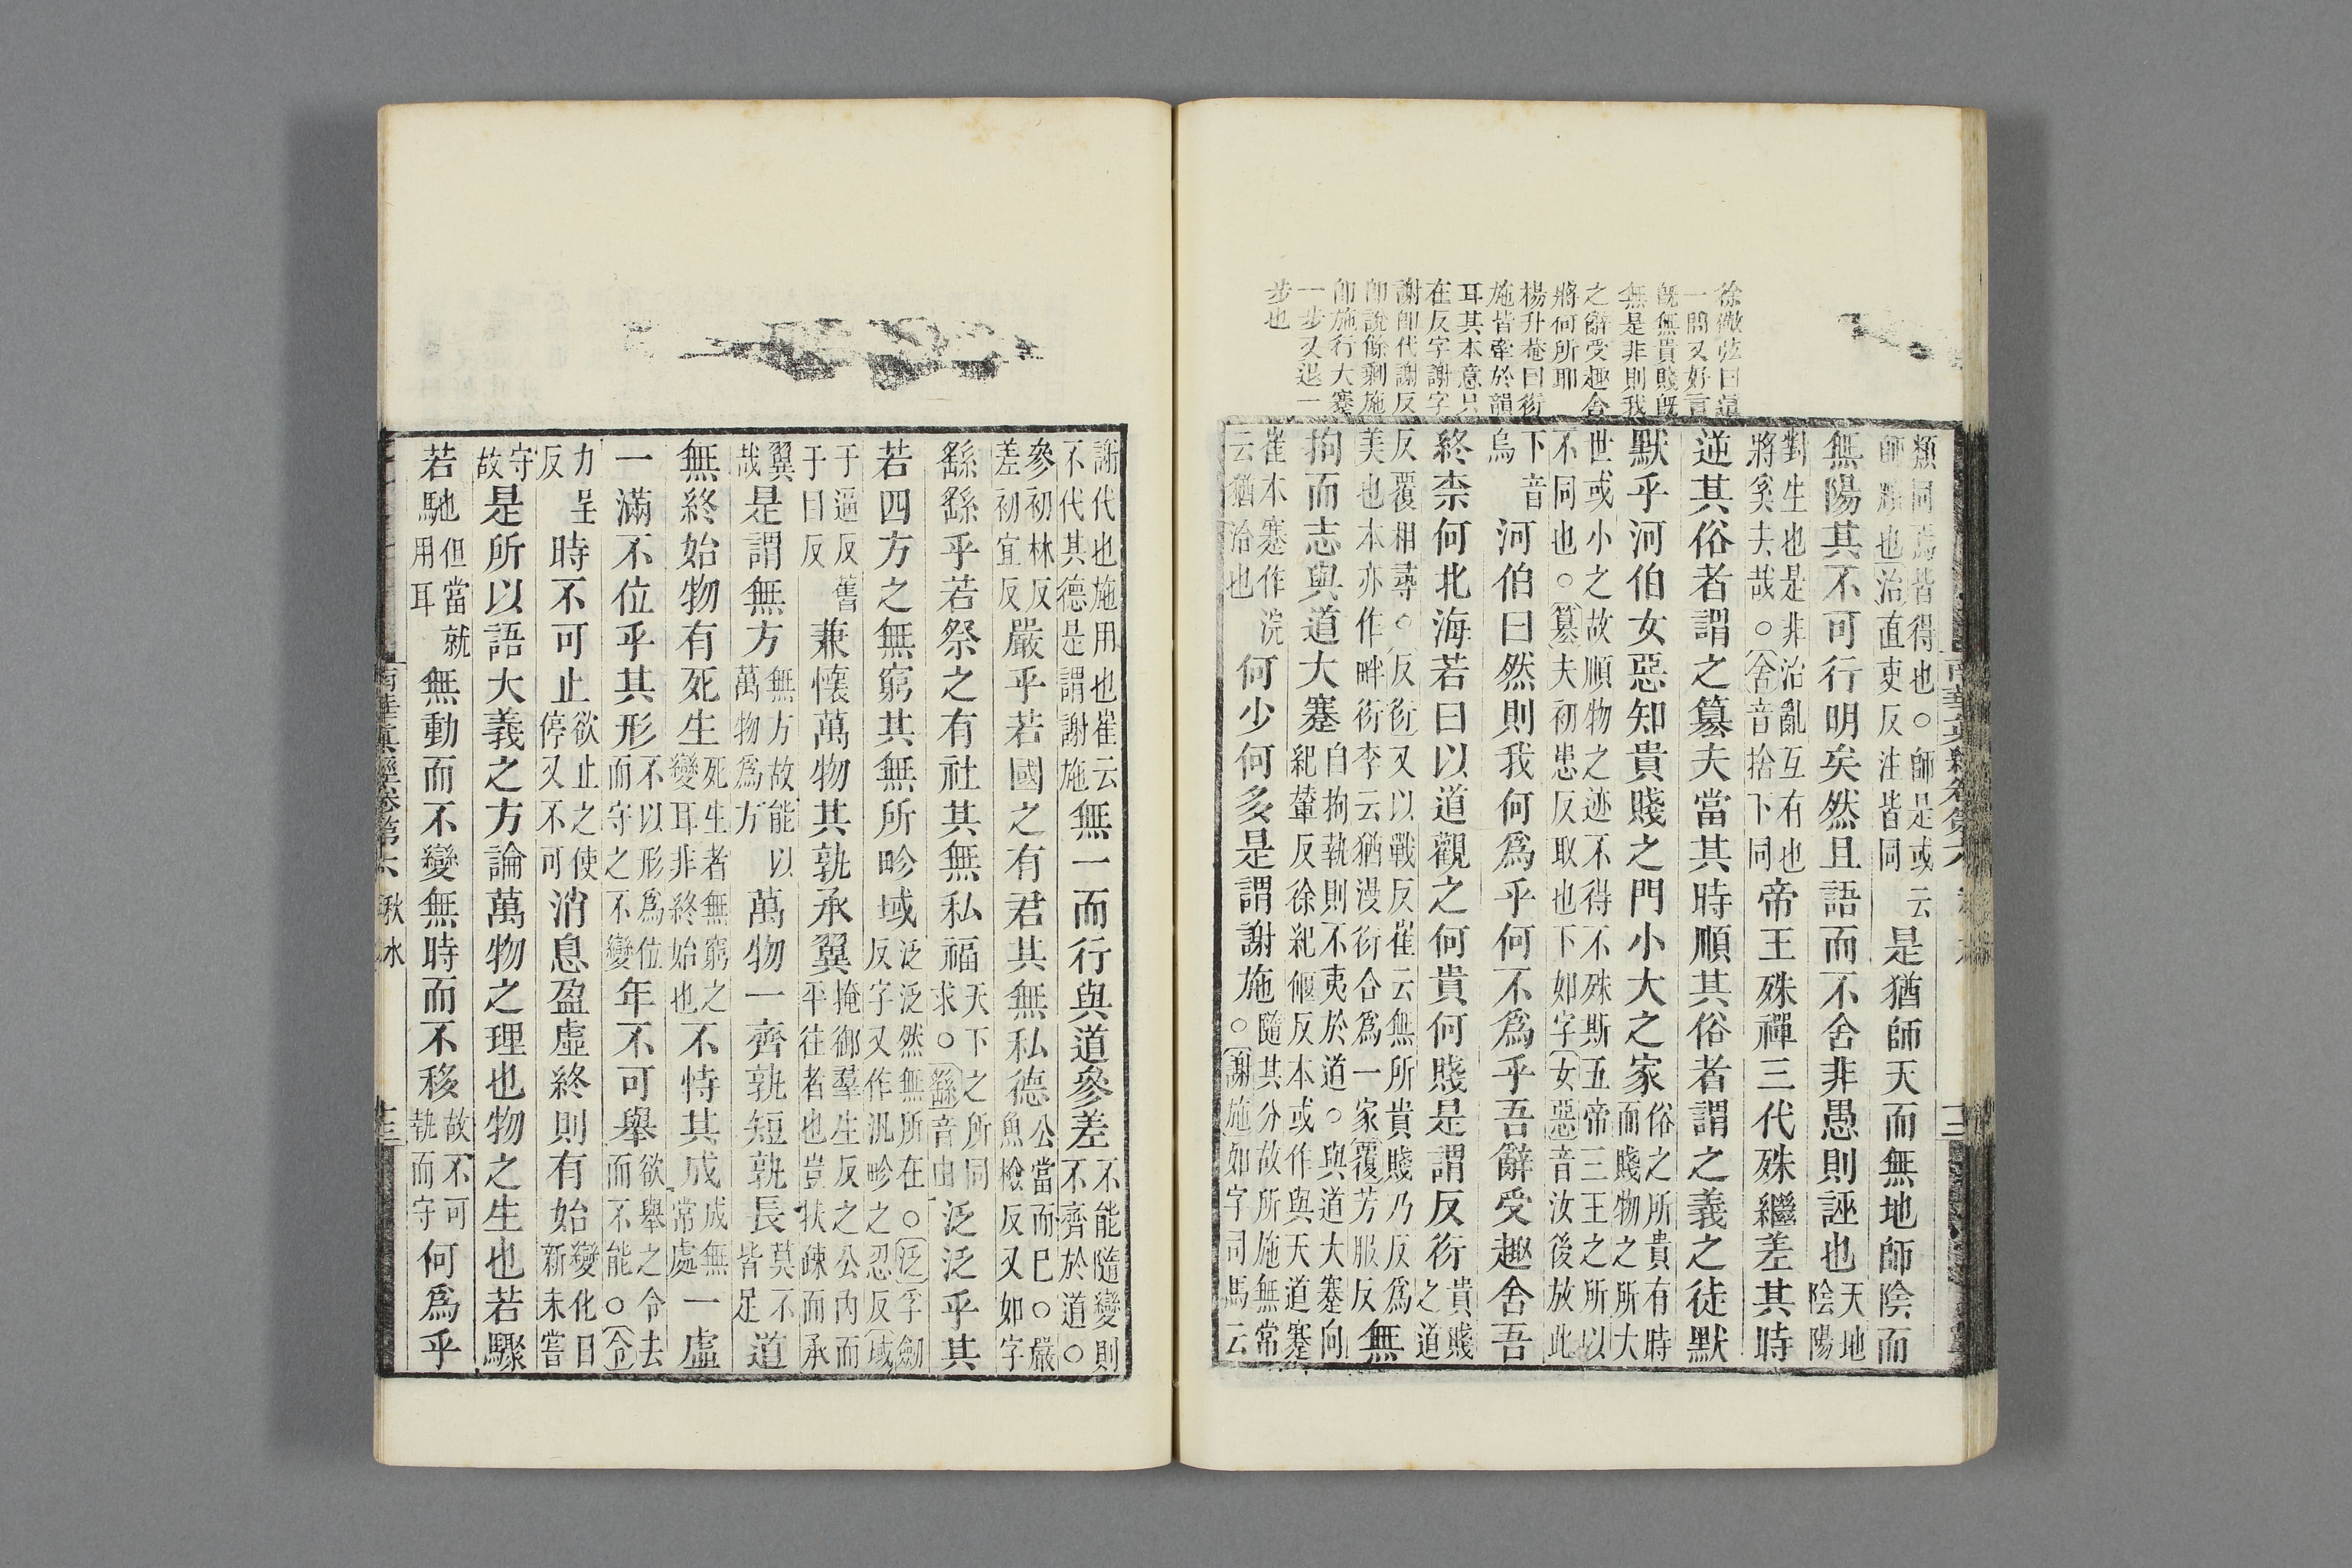 徐儆弦曰這
一問又好言
既無貴賤既
無是非則我
之辭受趣舍
將何所耶
楊升菴曰衍
施皆牽於韻
耳其本意只
在反字謝字
謝卽代謝反
卽說餘剩施
卽施行大蹇
一步又退一
步也
類同焉皆得也○師是或云
師順也治直吏反注皆同
是猶師天而無地師陰而
無陽其不可行明矣然且語而不舍非愚則誣也
天地陰陽
對生也是非治亂互有也
將奚夫哉○舍音捨下同
帝王殊禪三代殊繼差其時
逆其俗者謂之篡夫當其時順其俗者謂之義之徒默
默乎河伯女惡知貴賤之門小大之家
俗之所貴有時
而賤物之所大
世或小之故順物之迹不得不殊斯五帝三王之所以
不同也○篡夫初患反取也下如字女惡音汝後放此
下音
烏
河伯曰然則我何爲乎何不爲乎吾辭受趣舍吾
終柰何北海若曰以道觀之何貴何賤是謂反衍
貴賤
之道
反覆相尋○反衍又以戰反崔云無所貴賤乃反爲
美也本亦作畔衍李云猶漫衍合爲一家覆芳服反
無
拘而志與道大蹇
自拘執則不夷於道○與道大蹇向
紀輦反徐紀偃反本或作與天道蹇
崔本蹇作浣
云猶洽也
何少何多是謂謝施○
隨其分故所施無常
謝施如字司馬云
謝代也施用也崔云
不代其德是謂謝施
無一而行與道參差
不能隨變則
不齊於道○
參初林反
差初宜反
嚴乎若國之有君其無私德
公當而已○嚴
魚檢反又如字
繇繇乎若祭之有社其無私福
天下之所同
求○繇音由
泛泛乎其
若四方之無窮其無所畛域
泛泛然無所在○泛孚劒
反字又作汎畛之忍反域
于逼反舊
于曰反
兼懷萬物其孰承翼
掩御羣生反之公內而
平往者也豈扶疎而承
翼
哉
是謂無方
無方故能以
萬物爲方
萬物一齊孰短孰長
莫不
皆足
道
無終始物有死生
死生者無窮之
變耳非終始也
不恃其成
成無
常處
一虛
一滿不位乎其形
不以形爲位
而守之不變
年不可舉
欲舉之令去
而不能○令
力呈
反
時不可止
欲止之使
停又不可
消息盈虛終則有始
變化日
新未嘗
守
故
是所以語大義之方論萬物之理也物之生也若驟
若馳
但當就
用耳
無動而不變無時而不移
故不可
執而守
何爲乎
南華眞經卷第六 秋水
十三